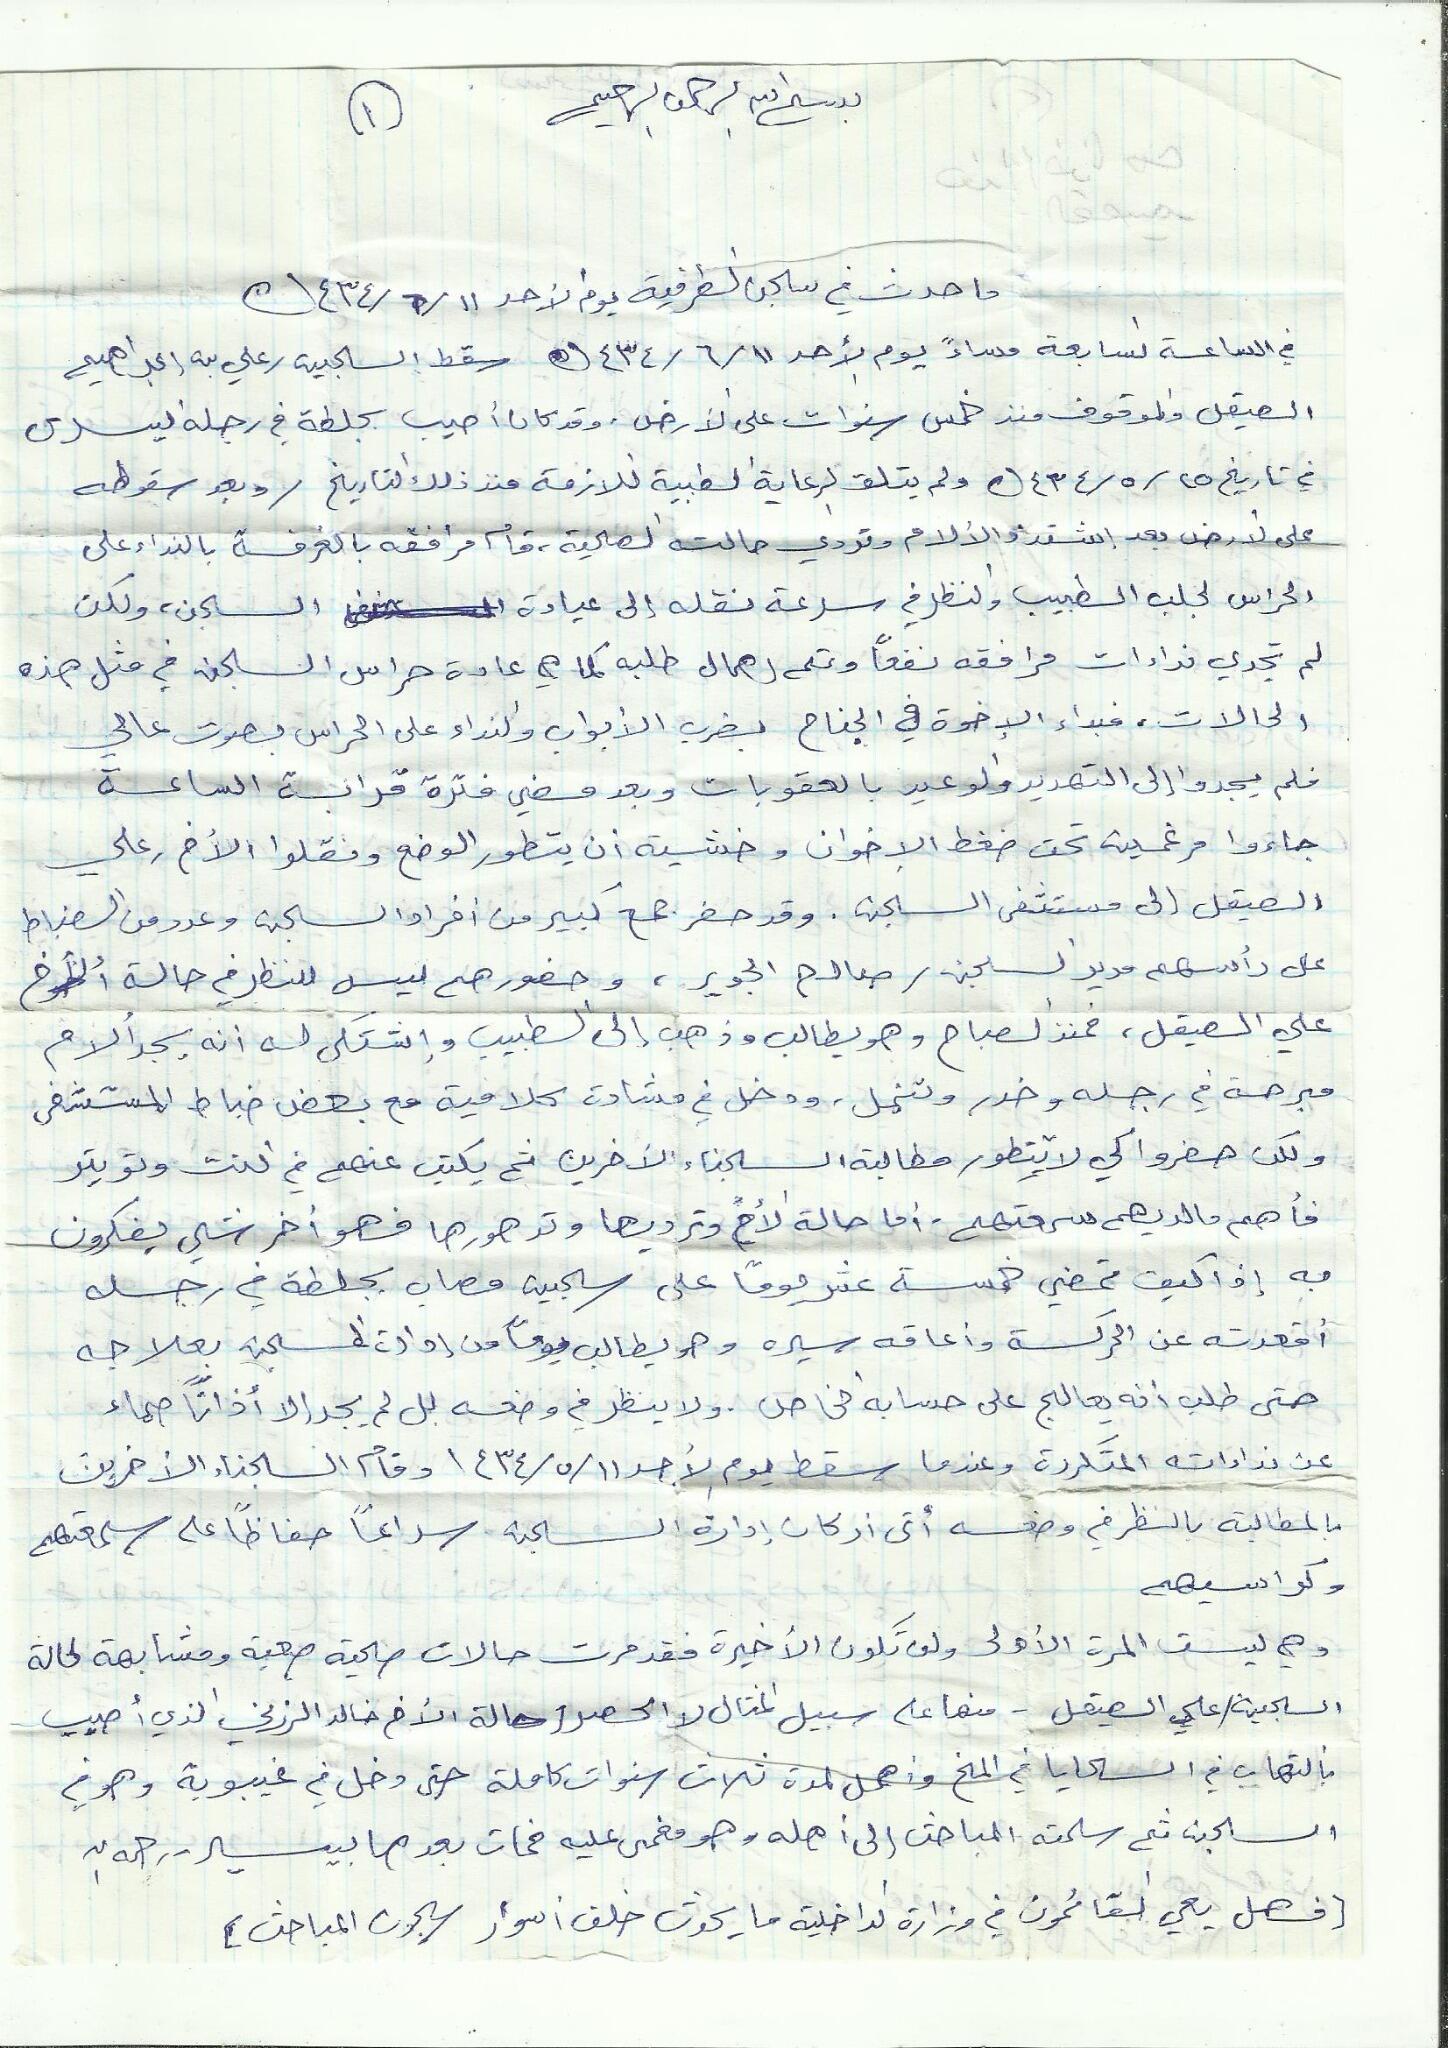 بسم الله الرحمن الرحيم
(١)
ما حدث في سجن الطرفية يوم الأحد ١١/٦/١٤٣٤هـ
في الساعة السابعة مساءً يوم الأحد ١١/٦/١٤٣٤هـ سقط السجين/علي بن إبراهيم
الصيقل والموقوف منذ خمس سنوات على الأرض. وقد كان أصيب بجلطة في رجله اليسرى
في تاريخ ٢٥/٥/١٤٣٤هـ ولم يتلق الرعاية الطبية اللازمة منذ ذلك التاريخ/وبعد سقوطه
على الأرض بعد الآلام وتردي حالته الصحية، قام مرافقه بالغرفة بالنداء على
الحراس لجلب الطبيب والنظر في سرعة نقله إلى عيادة السجن، ولكن
لم تجدي نداءات مرافقه نفعاً وتم إهمال طلبه كما هي عادة حراس السجن في مثل هذه
الحالات، فبداء الإخوة في الجناح بضرب الأبواب والنداء على الحراس بصوت عالي
فلم يجدوا إلى التهديد والوعيد بالعقوبات وبعد مضي فترة قرابة الساعة
جاءوا مرغمين تحت ضغط الإخوان وخشية أن يتطور الوضع ونقلوا الأخ/علي
الصيقل إلى مستشفى السجن. وقد حضر جمع كبير من أفراد السجن وعدد من الضباط
على رأسهم مدير السجن/صالح الجوير، وحضورهم ليس للنظر في حالة الأخ
علي الصيقل، فمنذ الصباح وهو يطالب وذهب إلى الطبيب وإشتكى له أنه يجد ألام
مبرحة في رجله وخدر وتنمل، ودخل في مشادة كلامية مع بعض ضباط المستشفى
ولكن حضروا كي لا يتطور مطالبة السجناء الأخرين ثم يكتب عنهم في النت وتويتر
فأهم مالديهم سمعتهم. أما حالة الأخ وترديها وتدهورها فهو أخر شي يفكرون
به إذا كيف تمضي خمسة عشر يوماً على سجين مصاب بجلطة في رجله
أقعدته عن الحركة وأعاقه سيره وهو يطالب يومياً من إدارة السجن بعلاجه
حتى طلب أنه يعالج على حسابه الخاص. ولا ينظر في وضعه بل لم يجد إلا أذاناً صماء
عن نداءاته المتكررة وعندما سقط يوم الأحد ١١/٥/١٤٣٤ وقام السجناء الأخرين
بالمطالبة بالنظر في وضعه أتى أركان إدارة السجن سراعاً حفاظاً على سمعتهم
وكراسيهم
وهي ليست المرة الأولى ولن تكون الأخيرة فقد مرت حالات صحية صعبة ومشابهة لحالة
السجين/علي الصيقل - منها على سبيل المثال لا الحصر حالة الأخ خالد الذي أصيب
بالتهاب في السحايا في المخ وأهمل لمدة ثلاث سنوات كاملة حتى دخل في غيبوبة وهو في
السجن ثم سلمته المباحث إلى أهله وهو مغمى عليه فمات بعدها بيسير - رحمه الله
[فهل يعي القائمون في وزارة الداخلية ما يحدث خلف أسوار سجون المباحث]